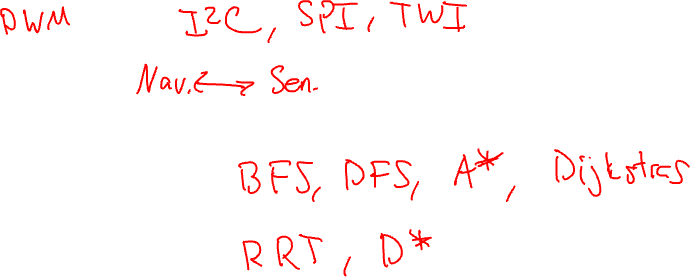 DWM I²C, SPI, TWI
Nav. ↔ Sen.
BFS, DFS, A*, Dijkstras
RRT, D*